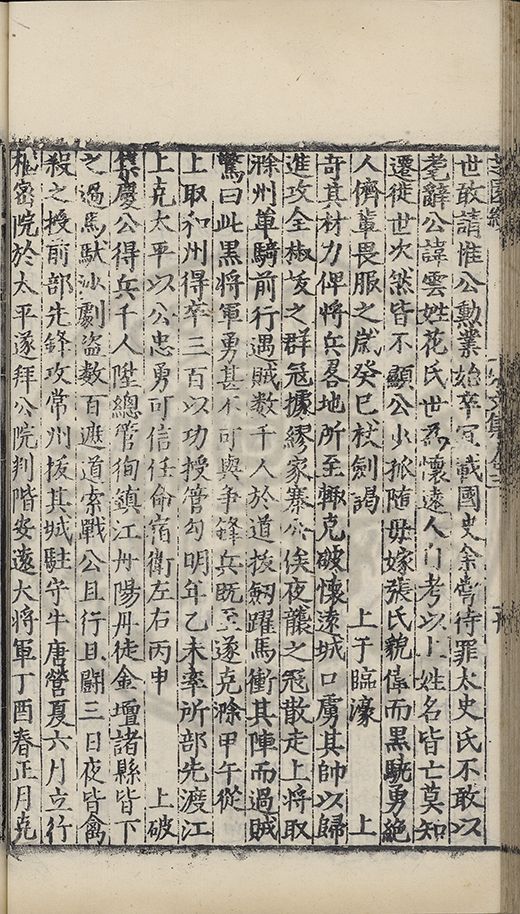 世敢請惟公勳業始卒冩載國史余甞待罪太史氏不敢以
耄辭公諱雲姓花氏世爲懷遠人自考以上姓名皆亡莫知
遷徙世次然皆不顯公少孤隨母嫁張氏貌偉而黑驍勇絕
人儕輩畏服之歳癸巳杖劍謁 上于臨濠 上
竒其材力俾將兵畧地所至輙克破懷遠城口虜其帥以歸
進攻全椒㧞之群冦據繆家寨公俟夜襲之冠散走上將取
滁州單騎前行遇賊數千人於道拔劔躍馬衝其陣而過賊
驚曰此黒將軍勇甚不可與爭鋒兵既至遂克滁甲午從
上取和州得卒三百以功授管勾明年乙未率所部先渡江
上克太平以公忠勇可信任命宿衛左右丙申 上破
集慶公得兵千人陞總管徇鎮江丹陽丹徒金壇諸縣皆下
之過馬馱沙劇盗数百遮道索戰公且行且鬪三日夜皆禽
殺之授前部先鋒攻常州拔其城駐守牛唐營夏六月立行
樞密院於太平遂拜公院判階安遠大將軍丁酉春正月克